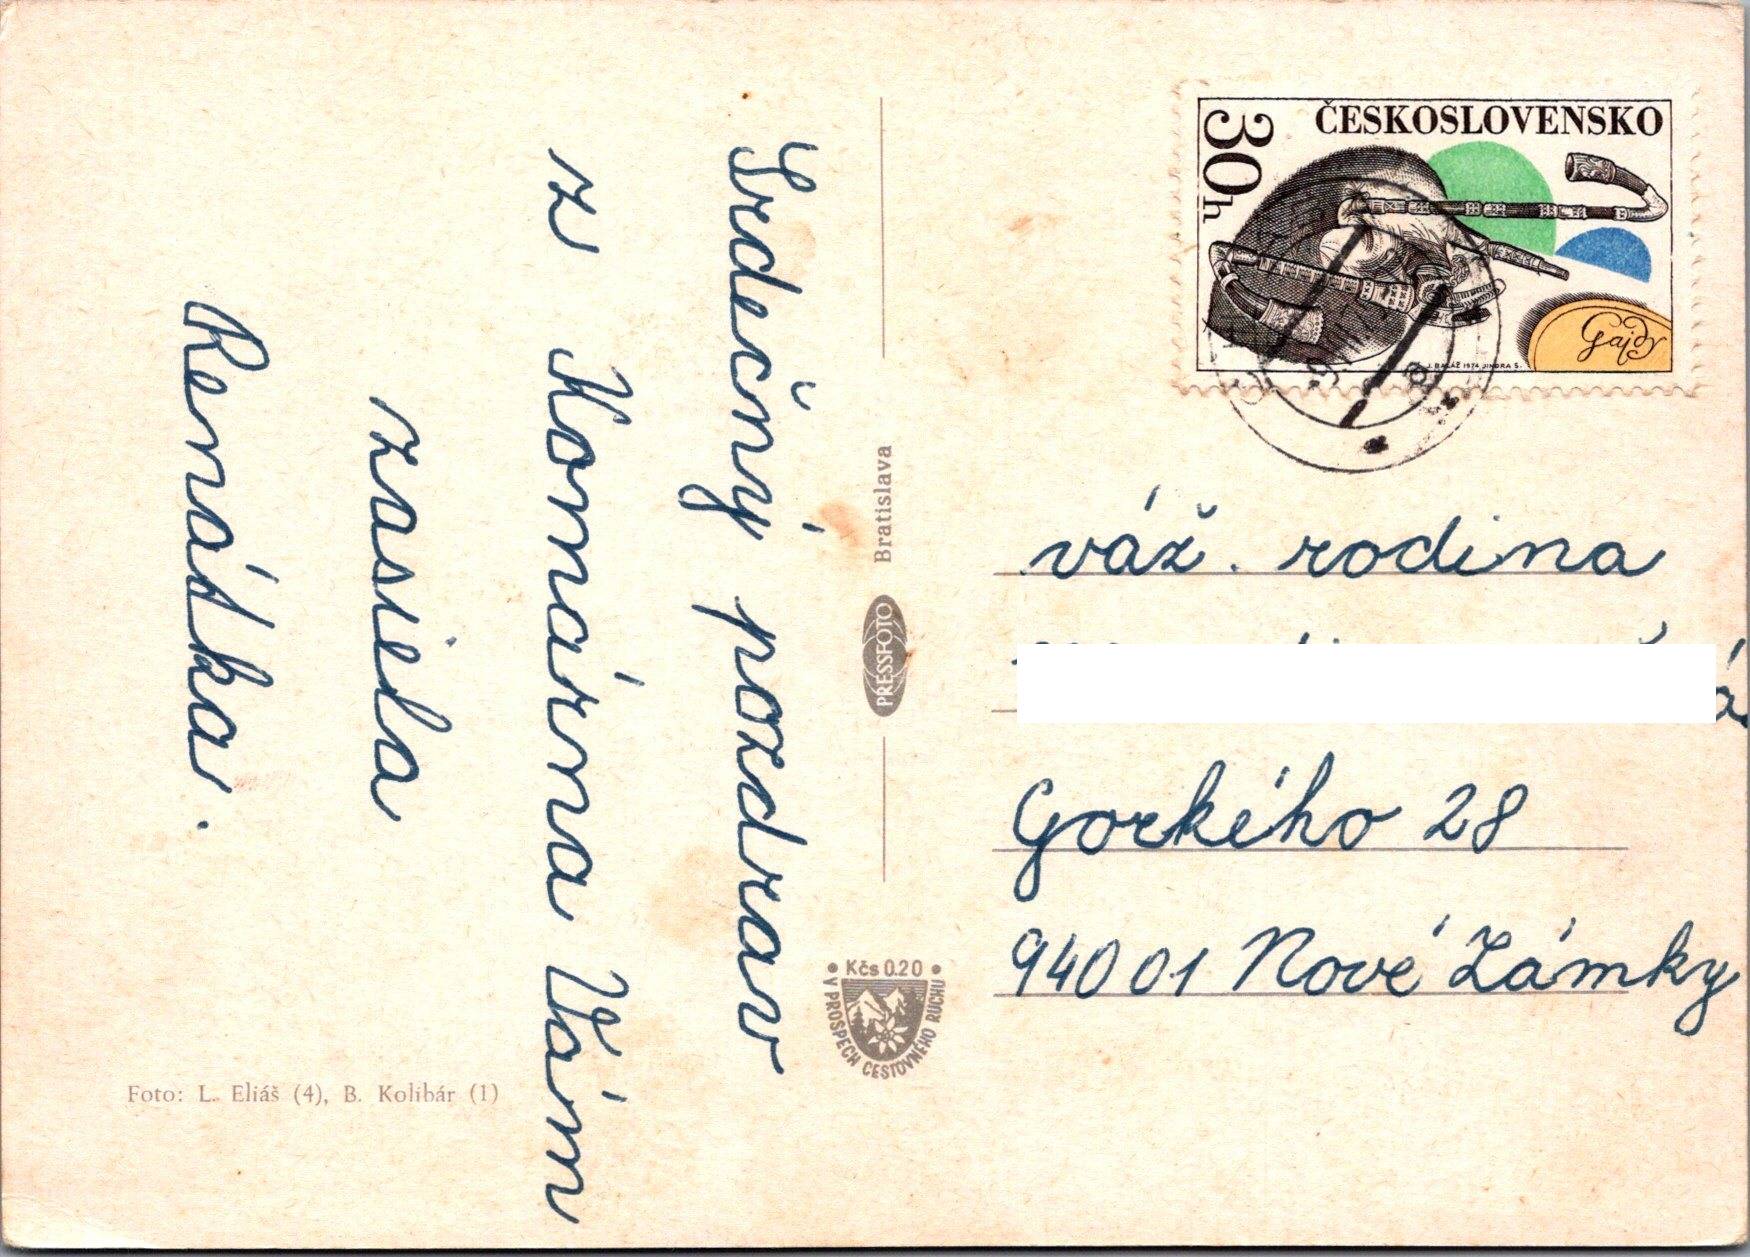 Srdečný pozdrav
z Komárna Vám
zasiela
Renátka.
Foto: L. Eliáš (4), B. Kolibár (1)
PRESSFOTO Bratislava
• Kčs 0.20 •
V PROSPECH CESTOVNÉHO RUCHU
ČESKOSLOVENSKO
30h
Gajdy
J. BALÁŽ 1974 JINDRA S.
váž. rodina
Gorkého 28
94001 Nové Zámky